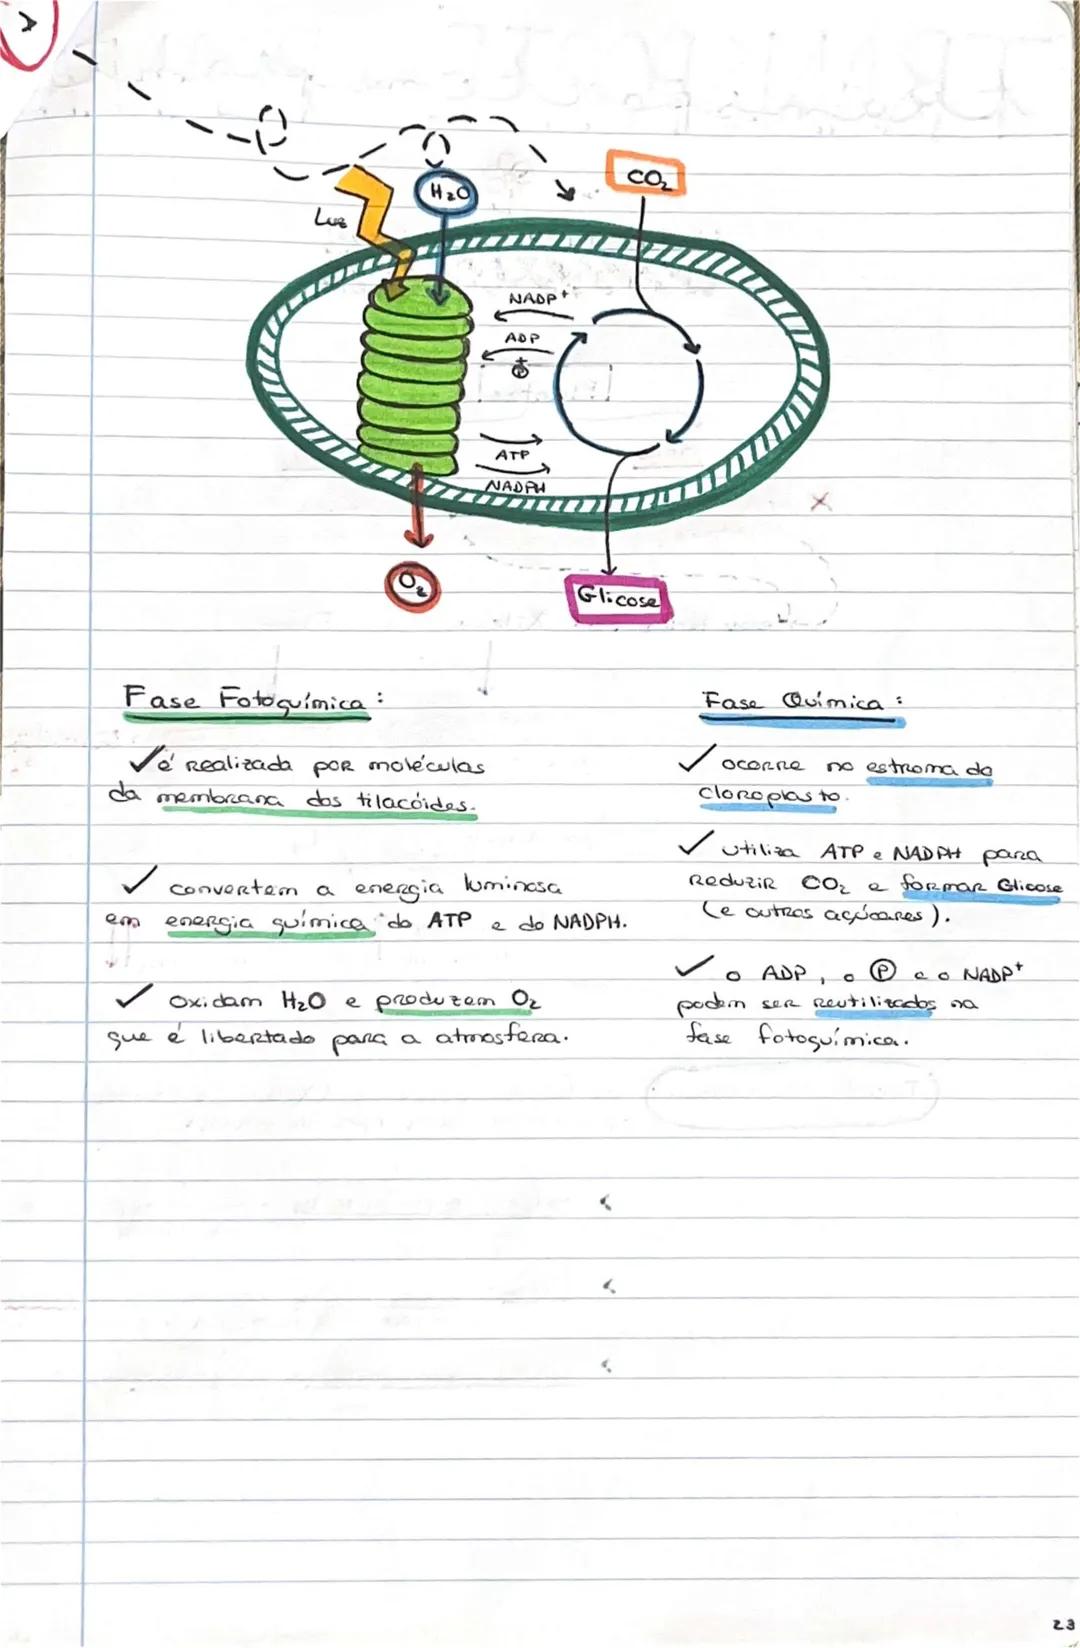 Luz
H₂O
CO₂
NADP⁺
ADP
+
Ⓟ
ATP
NADPH
O₂
Glicose
Fase Fotoquímica :
✓ é realizada por moléculas
da membrana dos tilacóides.
✓ convertem a energia luminosa
em energia química do ATP e do NADPH.
✓ Oxidam H₂O e produzem O₂
que é libertado para a atmosfera.
Fase Química :
✓ ocorre no estroma do
cloroplasto.
✓ utiliza ATP e NADPH para
Reduzir CO₂ e formar Glicose
(e outros açúcares).
✓ o ADP, o Ⓟ e o NADP⁺
podem ser Reutilizados na
fase fotoquímica.
23